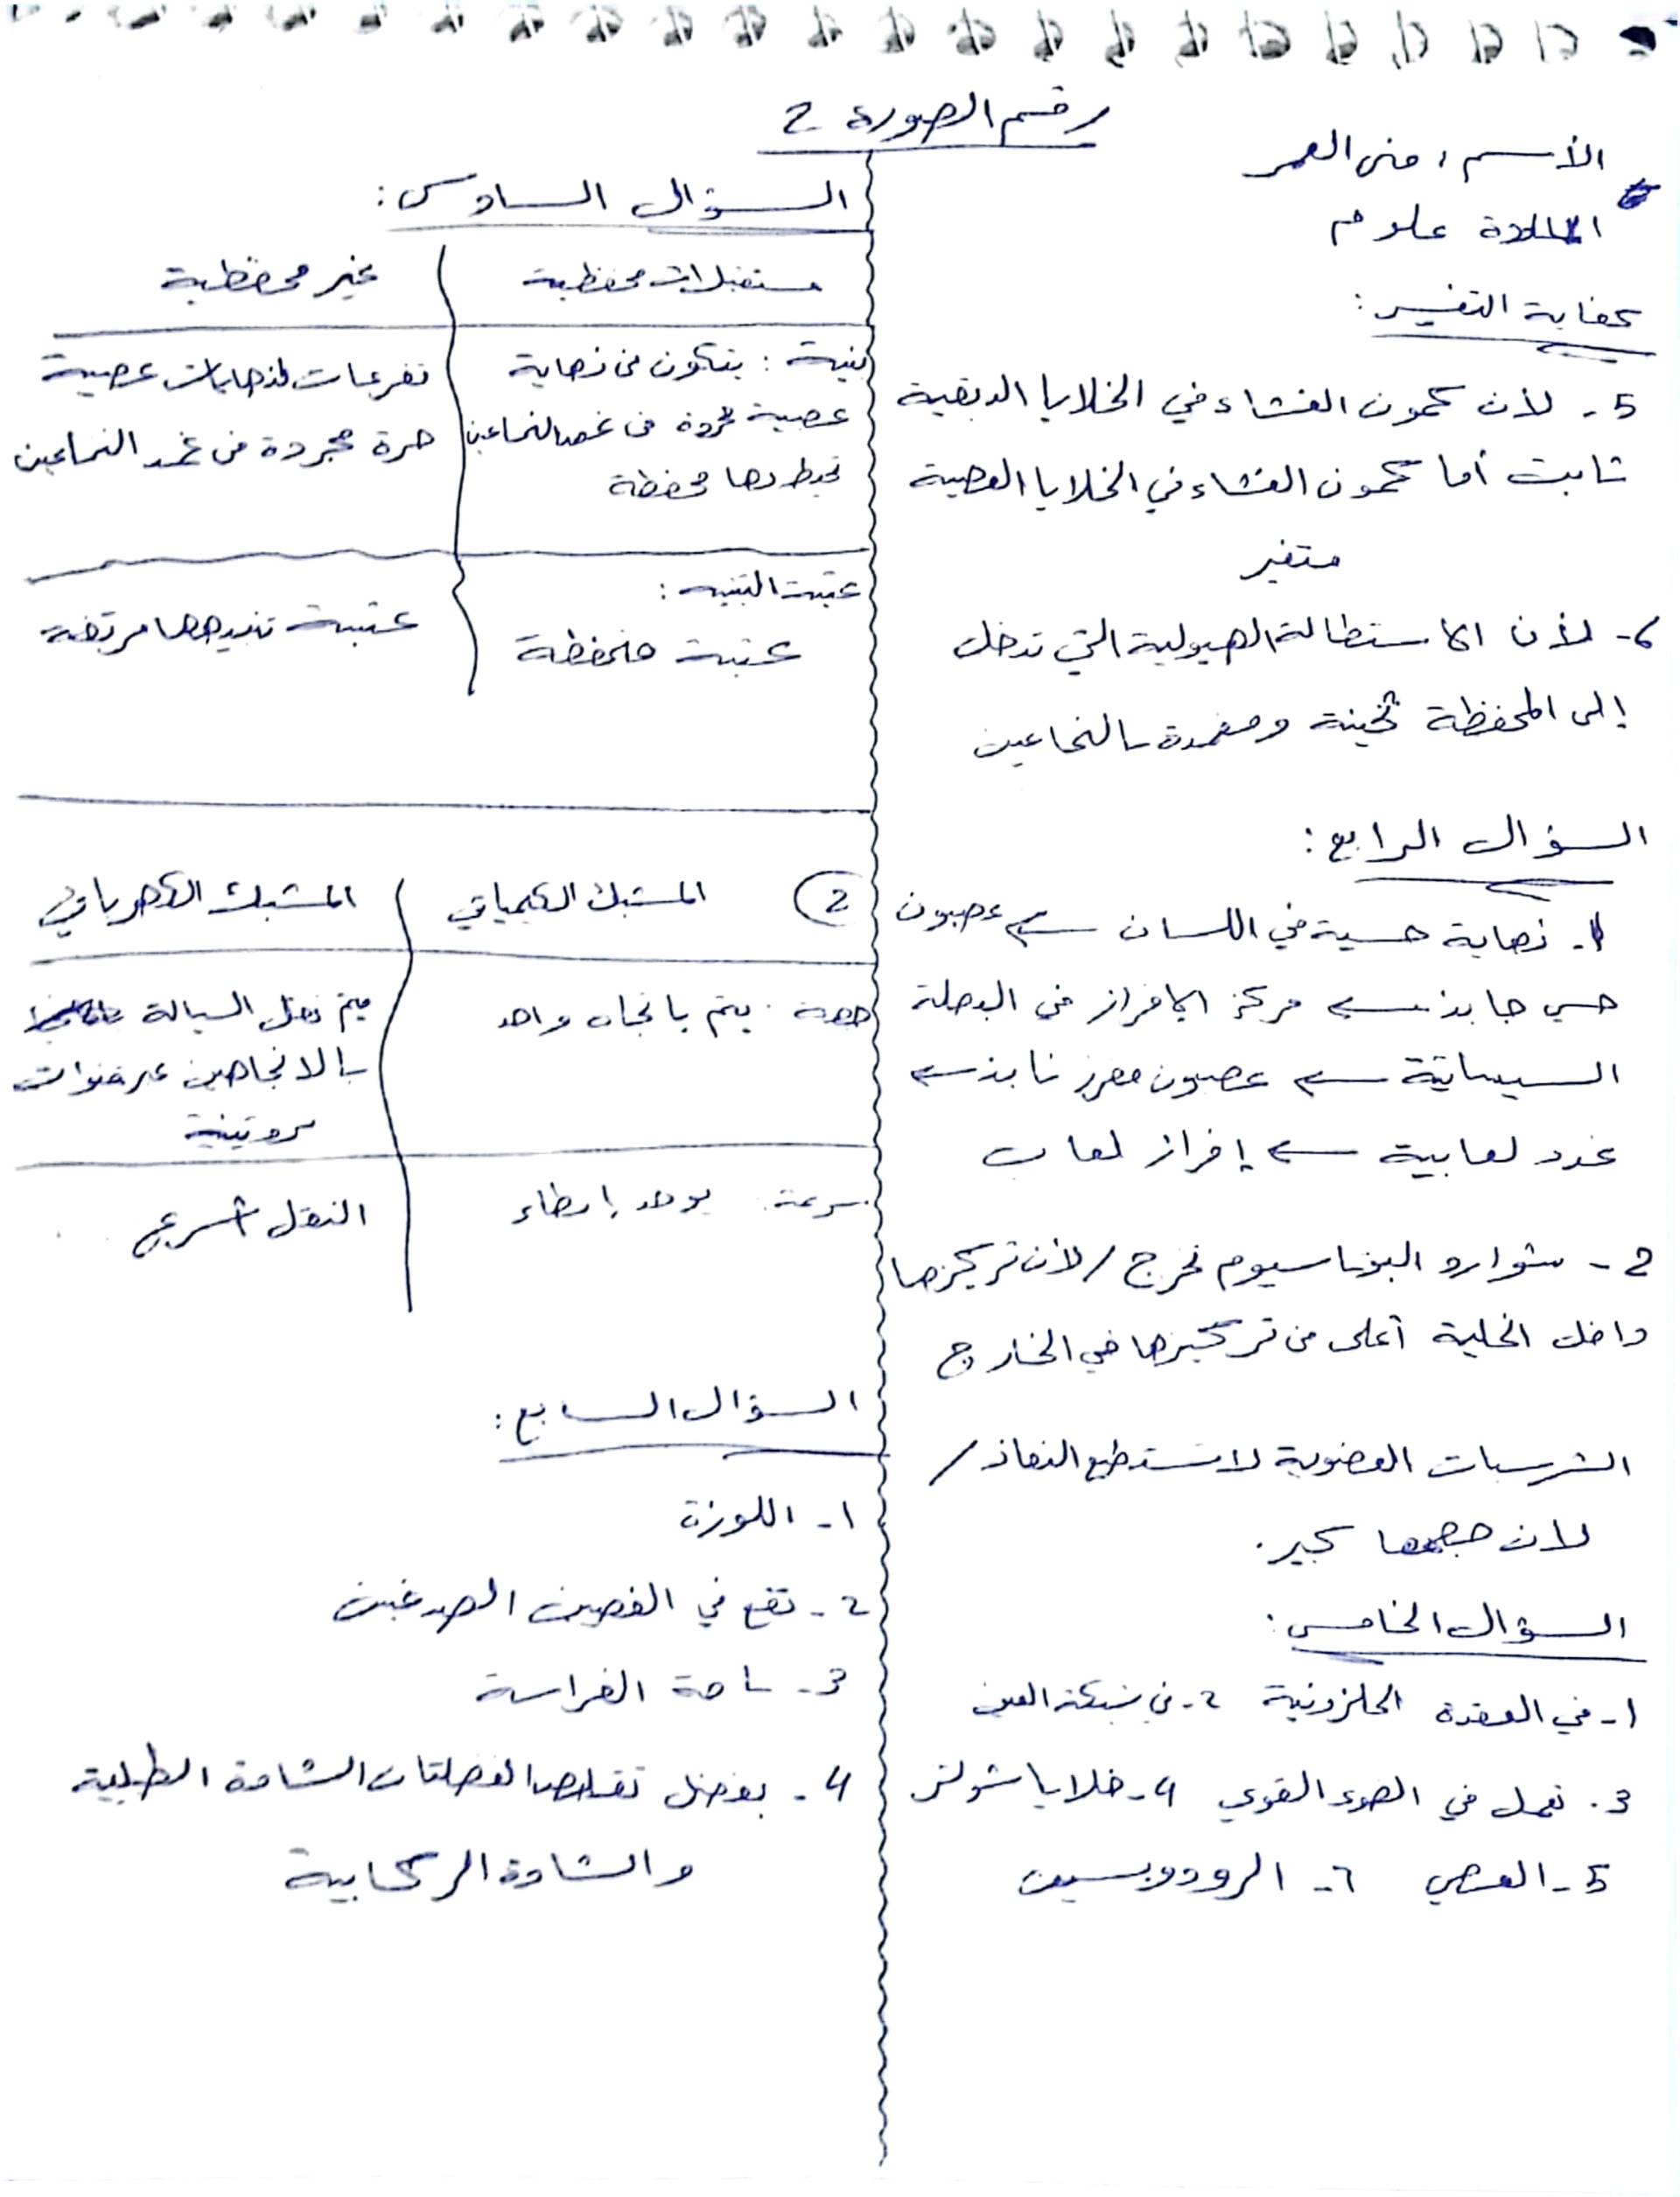 رقم الصورة 2
الأسم : منى العمر
المادة علوم
كفاية التفسير :
5 - لأن كمون الغشاء في الخلايا الدبقية
ثابت أما كمون الغشاء في الخلايا العصبية
متغير
6 - لأن الاستطالة الهيولية التي تدخل
إلى المحفظة ثخينة ومغمدة بالنخاعين
السؤال الرابع :
1 - نهاية حسية في اللسان ← عصبون
حسي جابذ ← مركز الإفراز في البصلة
السيسائية ← عصبون مفرز نابذ ←
غدد لعابية ← إفراز لعاب
2 - شوارد البوتاسيوم تخرج / لأن تركيزها
داخل الخلية أعلى من تركيزها في الخارج
الشرسبات العضوية لا تستطيع النفاذ /
لان حجمها كبير .
السؤال الخامس :
1 - في العقدة الحلزونية 2 - في شبكة العين
3 . تعمل في الضوء القوي 4 - خلايا شولتز
5 - العصي 6 - الرودوبسين
السؤال السادس :
مستقبلات محفظية غير محفظية
بنية : يتكون من نهاية تفرعات لنهايات عصبية
عصبية مجردة من غمد النخاعين حرة مجردة من غمد النخاعين
تحيط بها محفظة
عتبة التنبيه :
عتبة منخفظة عتبة تنبيهها مرتفعة
2 المشبك الكيميائي المشبك الكهربائي
جهة : يتم باتجاه واحد يتم نقل السيالة
بالاتجاهين عبر قنوات
بروتينية
سرعة : يوجد إبطاء النقل أسرع
السؤال السابع :
1 - اللوزة
2 - تقع في الفصين الصدغيين
3 - باحة الفراسة
4 - بفضل تقلص العضلتان الشادة الطبلية
والشادة الركابية